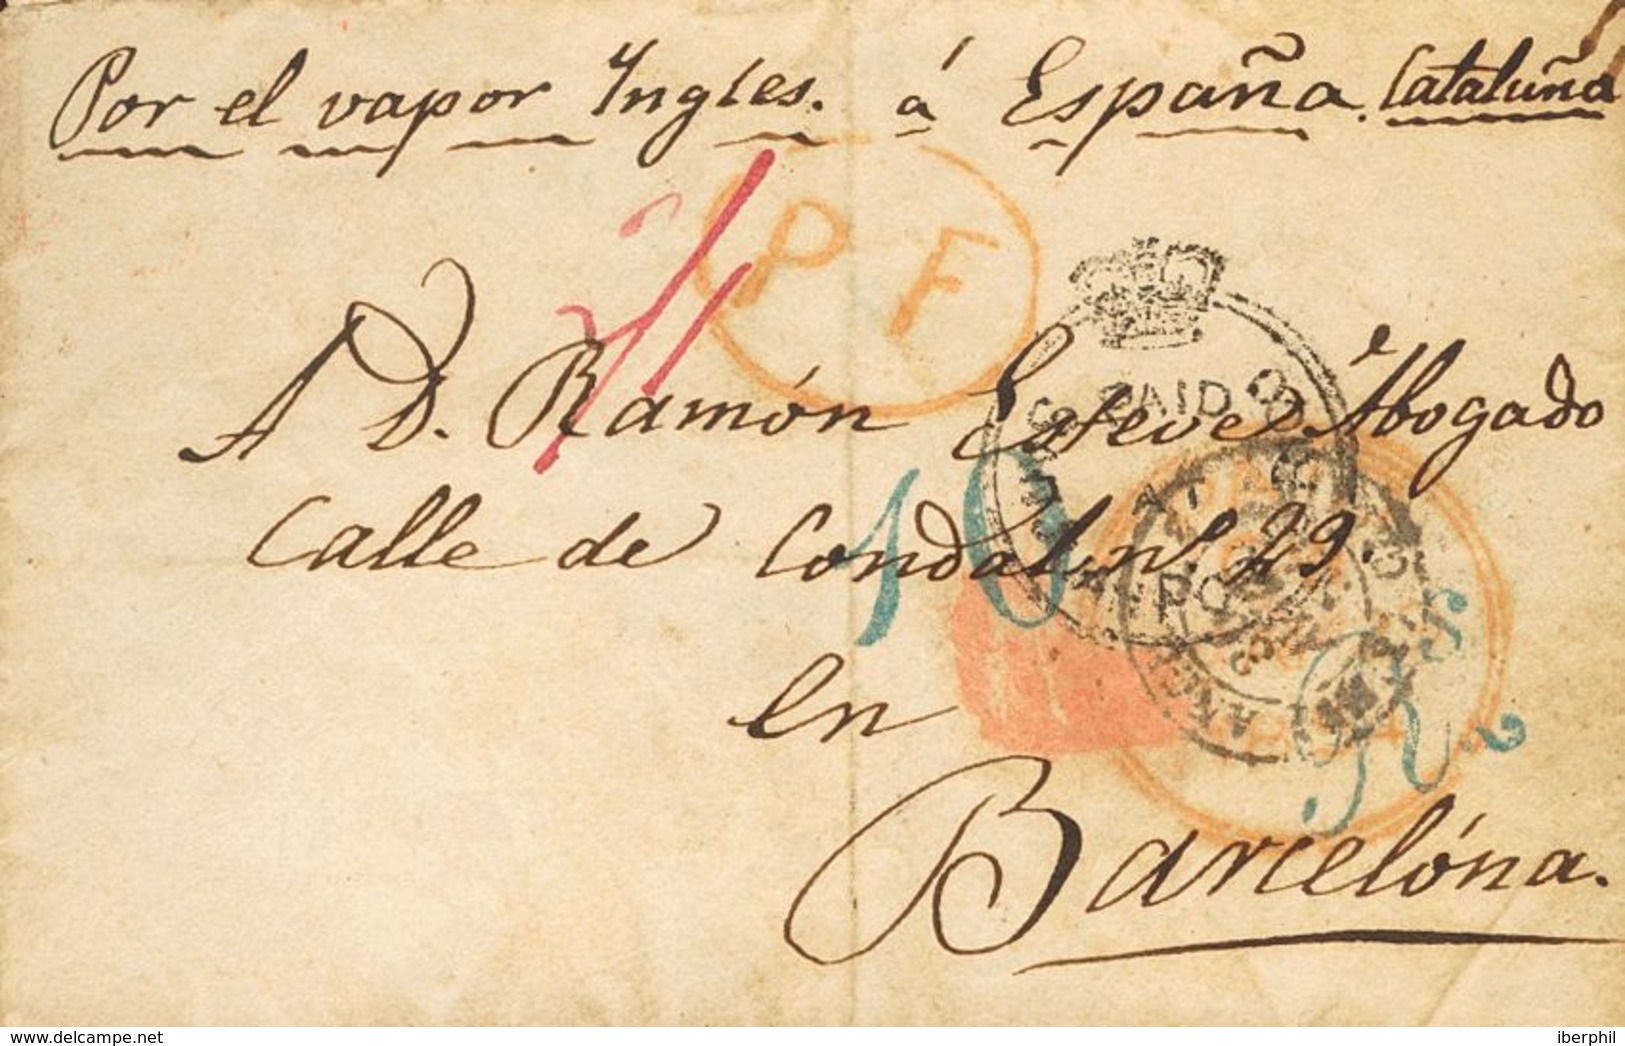 Por el vapor Ingles. á España. Cataluña
P F
PAID
A D. Ramón Esteve Abogado
Calle de Condal nº 29.
10
en
Barcelóna.
www.delcampe.net
iberphil